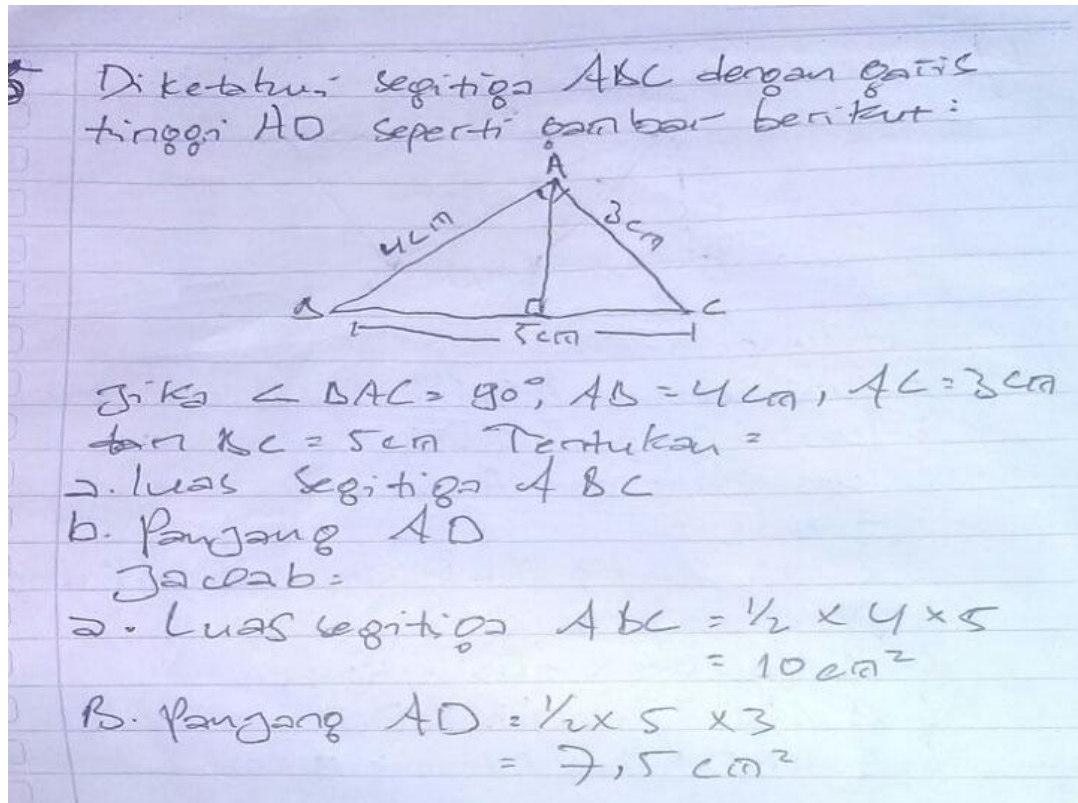 5 Diketahui segitiga ABC dengan garis
tinggi AD seperti gambar berikut :
A
4cm
3cm
B
C
5cm
Jika < BAC = 90°, AB = 4 cm, AC = 3 cm
dan BC = 5 cm Tentukan =
a. luas segitiga ABC
b. Panjang AD
Jawab =
a. Luas segitiga AbC = 1/2 x 4 x 5
= 10 cm²
B. Panjang AD = 1/2 x 5 x 3
= 7,5 cm²